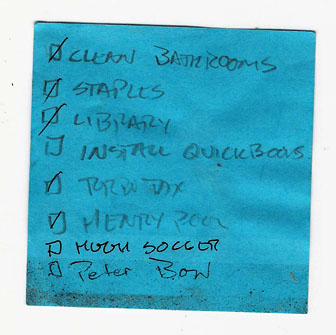 CLEAN BATHROOMS
STAPLES
LIBRARY
INSTALL QUICKBOOKS
TURBO TAX
HENRY POOL
HUGH SOCCER
Peter Bow